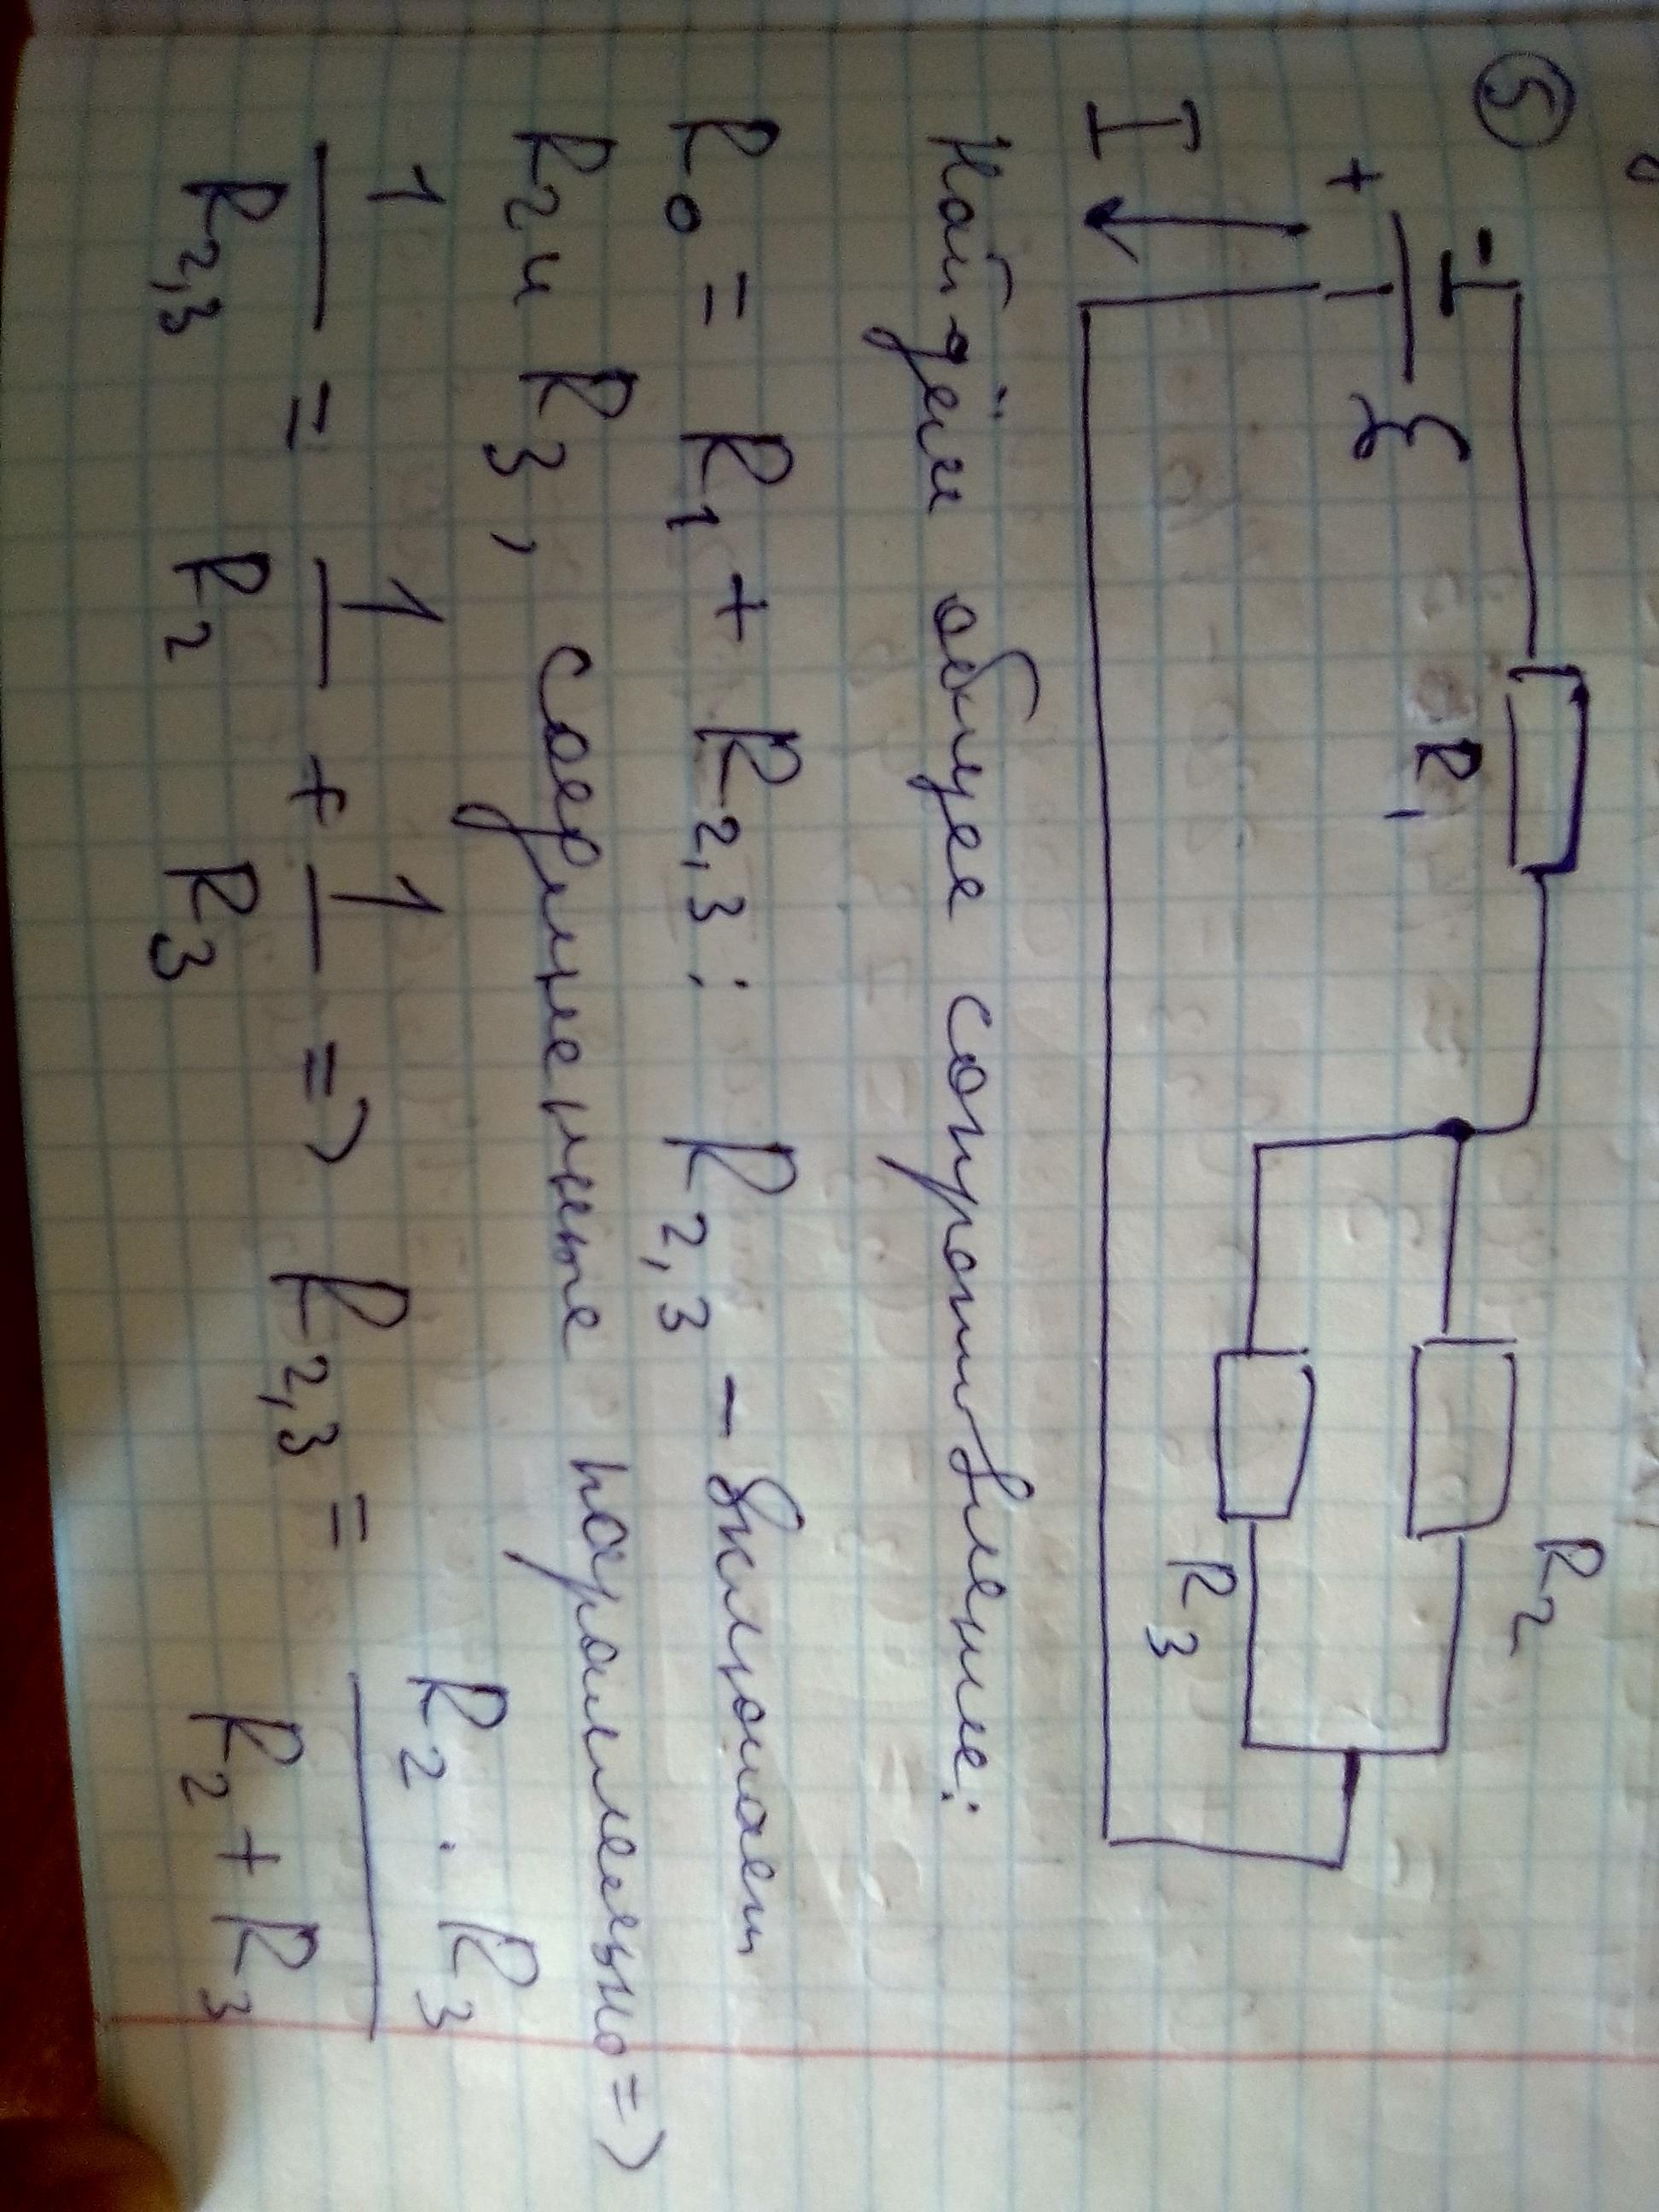 5
R1
R2
- +
ℰ
R3
I
Найдём общее сопротивление:
R0 = R1 + R2,3; R2,3 - включает
R2 и R3, соединенные параллельно =>
1/R2,3 = 1/R2 + 1/R3 => R2,3 = R2 · R3/R2 + R3